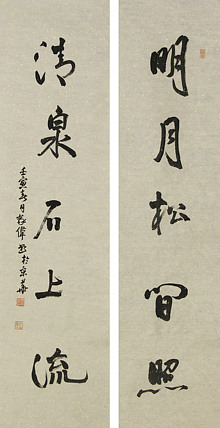 明月松间照
清泉石上流
壬寅春月於京华